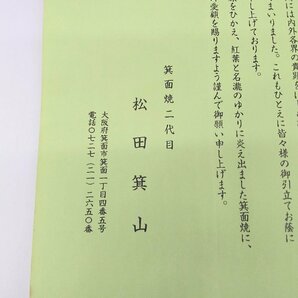 には内外各界の貴賓を
まいりました。これもひとえに皆々様の御引立てお陰に
し上げております。
をひかえ、紅葉と名瀧のゆかりに炎え出ました箕面焼に、
愛顧を賜りますよう謹んで御願い申し上げます。
箕面焼二代目
松田箕山
大阪府箕面市箕面一丁目四番五号
電話〇七二七(二一)二六五〇番